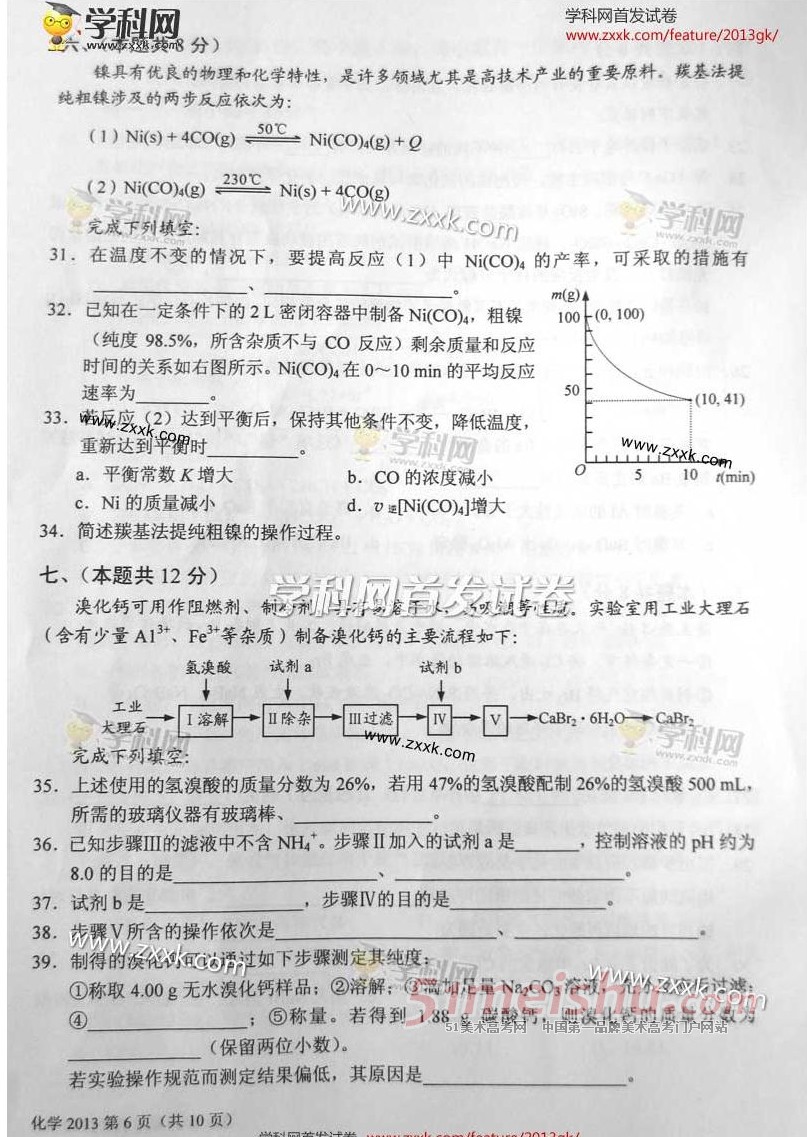 学科网 zxxk.com
学科网首发试卷
www.zxxk.com/feature/2013gk/
六、(本题共8分)
镍具有优良的物理和化学特性，是许多领域尤其是高技术产业的重要原料。羰基法提
纯粗镍涉及的两步反应依次为：
(1) Ni(s) + 4CO(g) ⇌ Ni(CO)₄(g) + Q 50℃
(2) Ni(CO)₄(g) ⇌ Ni(s) + 4CO(g) 230℃
学科网 zxxk.com www.zxxk.com 学科网 zxxk.com
完成下列填空：
31. 在温度不变的情况下，要提高反应（1）中 Ni(CO)₄ 的产率，可采取的措施有
________、________。
32. 已知在一定条件下的 2 L 密闭容器中制备 Ni(CO)₄，粗镍
（纯度 98.5%，所含杂质不与 CO 反应）剩余质量和反应
时间的关系如右图所示。Ni(CO)₄ 在 0～10 min 的平均反应
速率为________。
m(g)
100 (0, 100)
50
(10, 41)
O 5 10 t(min)
www.zxxk.com
33. 若反应（2）达到平衡后，保持其他条件不变，降低温度，
重新达到平衡时________。
www.zxxk.com 学科网 zxxk.com
a. 平衡常数 K 增大 b. CO 的浓度减小
c. Ni 的质量减小 d. v逆[Ni(CO)₄]增大
34. 简述羰基法提纯粗镍的操作过程。
七、（本题共 12 分）
学科网首发试卷
溴化钙可用作阻燃剂、制冷剂，具有易溶于水、易吸潮等性质。实验室用工业大理石
（含有少量 Al³⁺、Fe³⁺等杂质）制备溴化钙的主要流程如下：
氢溴酸 试剂 a 试剂 b
工业
大理石 → Ⅰ溶解 → Ⅱ除杂 → Ⅲ过滤 → Ⅳ → Ⅴ → CaBr₂·6H₂O → CaBr₂
学科网 zxxk.com www.zxxk.com 学科网 zxxk.com
完成下列填空：
35. 上述使用的氢溴酸的质量分数为 26%，若用 47%的氢溴酸配制 26%的氢溴酸 500 mL，
所需的玻璃仪器有玻璃棒、________。
36. 已知步骤Ⅲ的滤液中不含 NH₄⁺。步骤Ⅱ加入的试剂 a 是________，控制溶液的 pH 约为
8.0 的目的是________、________。
37. 试剂 b 是________，步骤Ⅳ的目的是________。
38. 步骤Ⅴ所含的操作依次是________、________。
www.zxxk.com
39. 制得的溴化钙可以通过如下步骤测定其纯度：
学科网 zxxk.com www.zxxk.com
①称取 4.00 g 无水溴化钙样品；②溶解；③滴加足量 Na₂CO₃ 溶液，充分反应后过滤；
51meishu.com
④________；⑤称量。若得到 1.88 g 碳酸钙，则溴化钙的质量分数为
51美术高考网 中国第一品牌美术高考门户网站
________（保留两位小数）。
若实验操作规范而测定结果偏低，其原因是________。
化学 2013 第 6 页（共 10 页）
学科网首发试卷 www.zxxk.com/feature/2013gk/